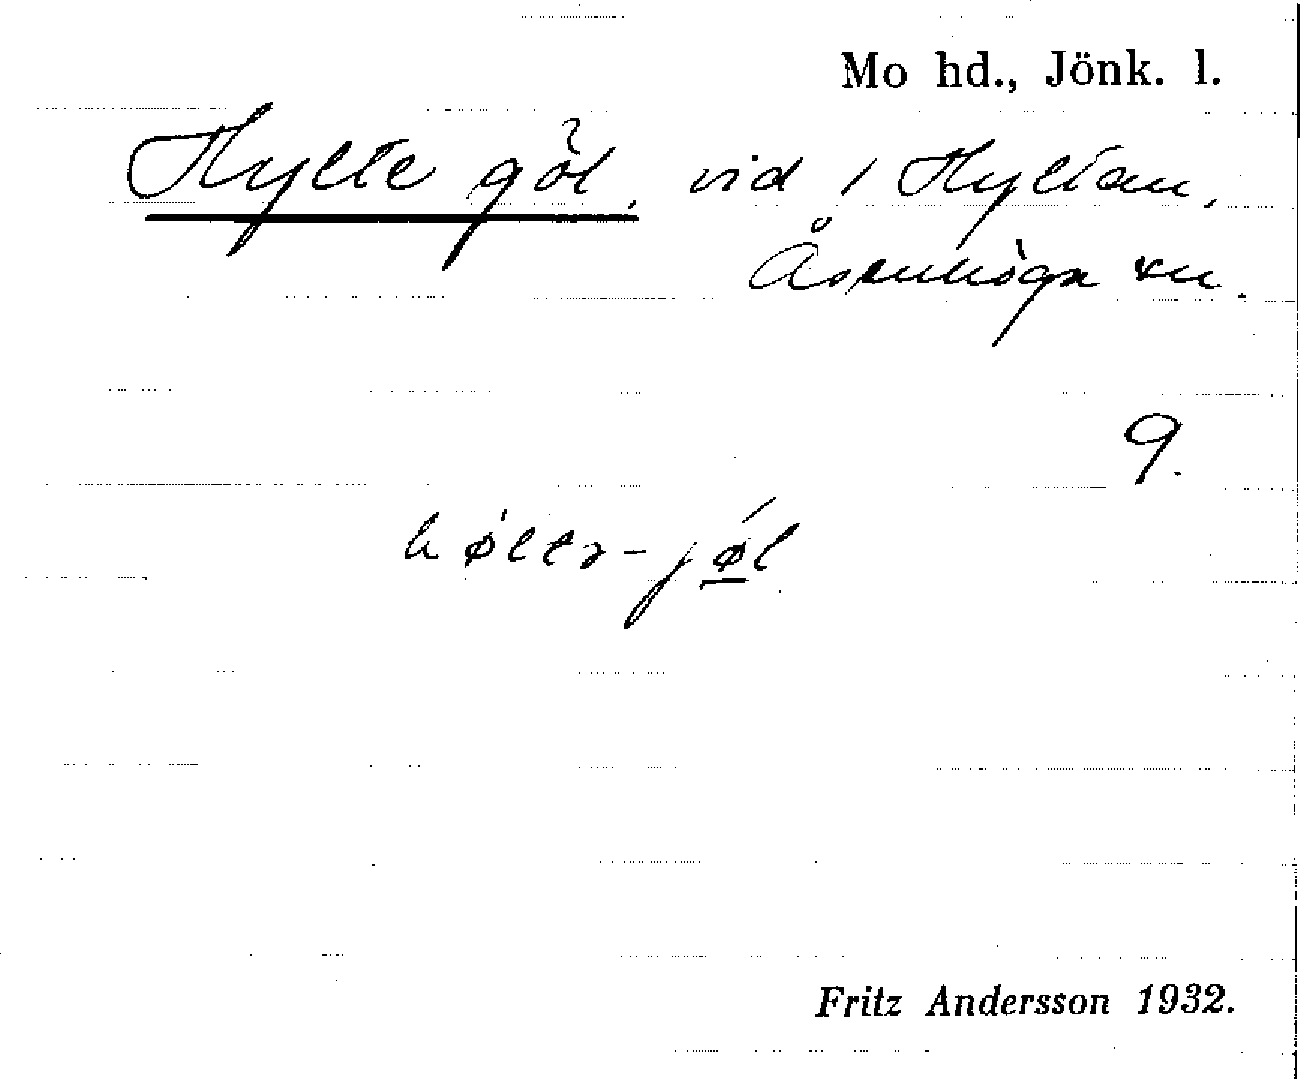 Mo hd., Jönk. l.
Hylte göl, vid 1 Hyltan,
Åsenhöga sn.
9.
høltə-jøl
Fritz Andersson 1932.